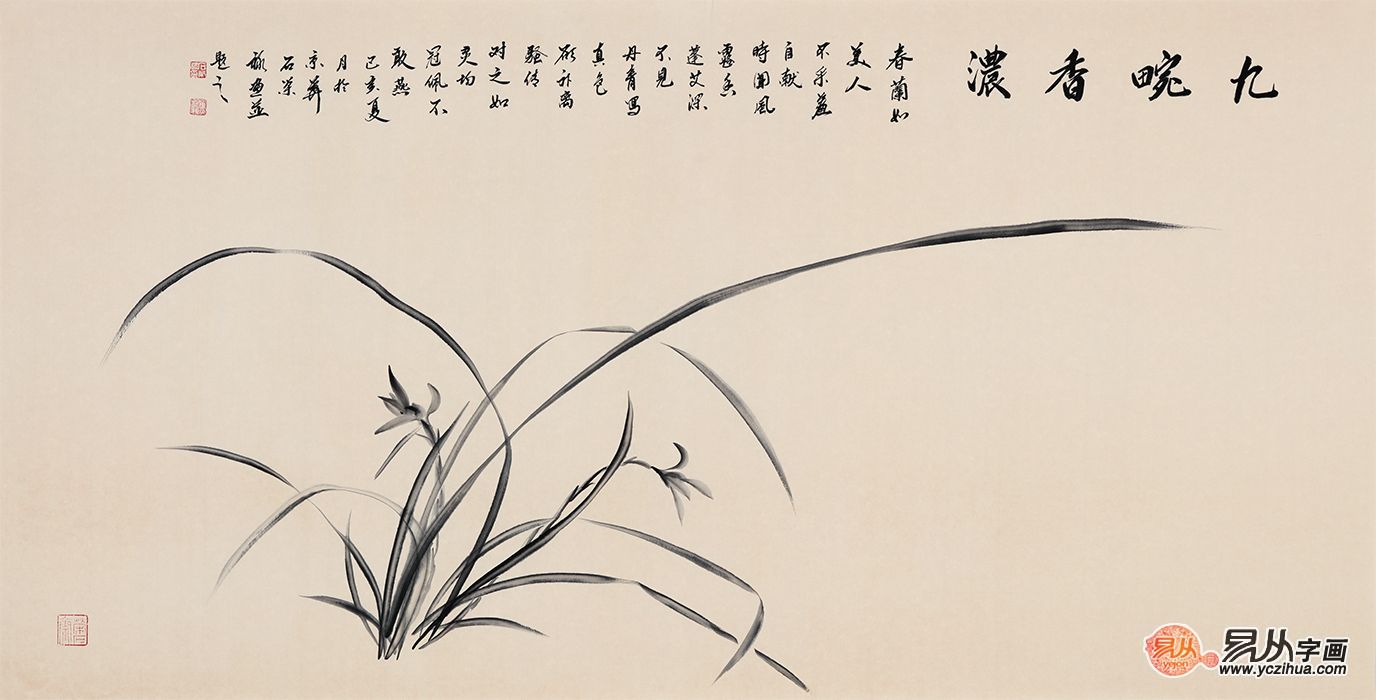 九畹香濃
春蘭如
美人
不采羞
自献
時聞風
露香
蓬艾深
不見
丹青寫
真色
欲补离
騷传
对之如
灵均
冠佩不
敢燕
己亥夏
月於
京華
石荣
禄画並
題之
易从
yejon
易从字画
www.yczihua.com